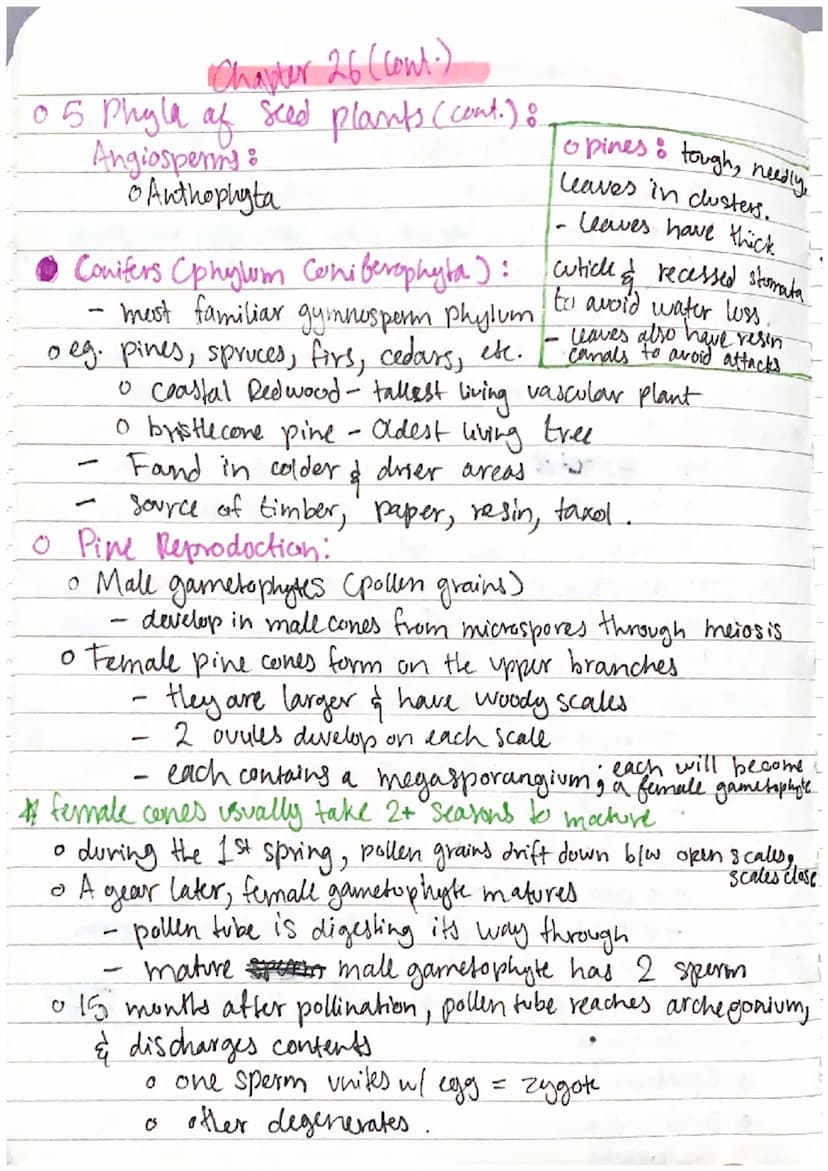 Chapter 26 (cont.)
o 5 Phyla of Seed plants (cont.) :
Angiosperms :
o Anthophyta
o pines : tough, needly
leaves in clusters.
- leaves have thick
cuticle & recessed stomata
to avoid water loss.
- leaves also have resin
canals to avoid attacks
● Conifers (phylum Coniferophyta) :
- most familiar gymnosperm phylum
o eg. pines, spruces, firs, cedars, etc.
o Coastal Redwood - tallest living vascular plant
o bristlecone pine - oldest living tree
- Fand in colder & drier areas
- source of timber, paper, resin, taxol.
o Pine Reproduction:
o Male gametophytes (pollen grains)
- develop in male cones from microspores through meiosis
o Female pine cones form on the upper branches
- they are larger & have woody scales
- 2 ovules develop on each scale
- each contains a megasporangium; each will become
a female gametophyte
* female cones usually take 2+ seasons to mature
o during the 1st spring, pollen grains drift down b/w open scales,
scales close
o A year later, female gametophyte matures
- pollen tube is digesting its way through
- mature sperm male gametophyte has 2 sperm
o 15 months after pollination, pollen tube reaches archegonium,
& discharges contents
o one sperm unites w/ egg = zygote
o other degenerates.